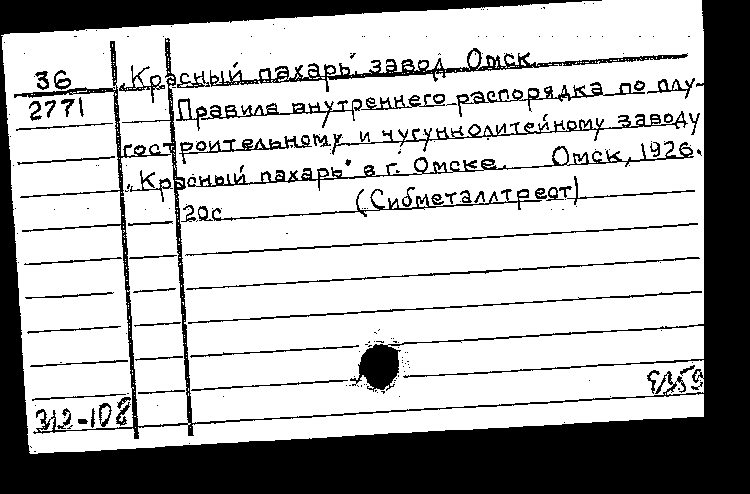 36 „Красный пахарь". завод Омск.
2771 Правила внутреннего распорядка по плу-
гостроительному и чугуннолитейному заводу
„Красный пахарь" в г. Омске. Омск, 1926.
20с (Сибметаллтрест)
312-108